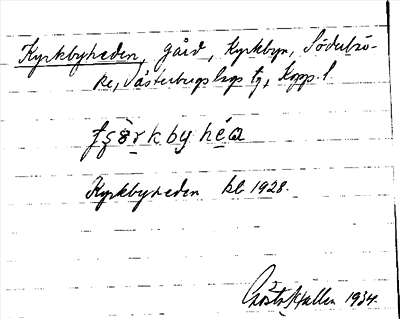 Kyrkbyheden, gård, Kyrkbyn, Söderbär-
ke, Västerbergslags tg, Kopp. l.
Kyrkbyheden hl 1928.
Gösta Hallen 1934.